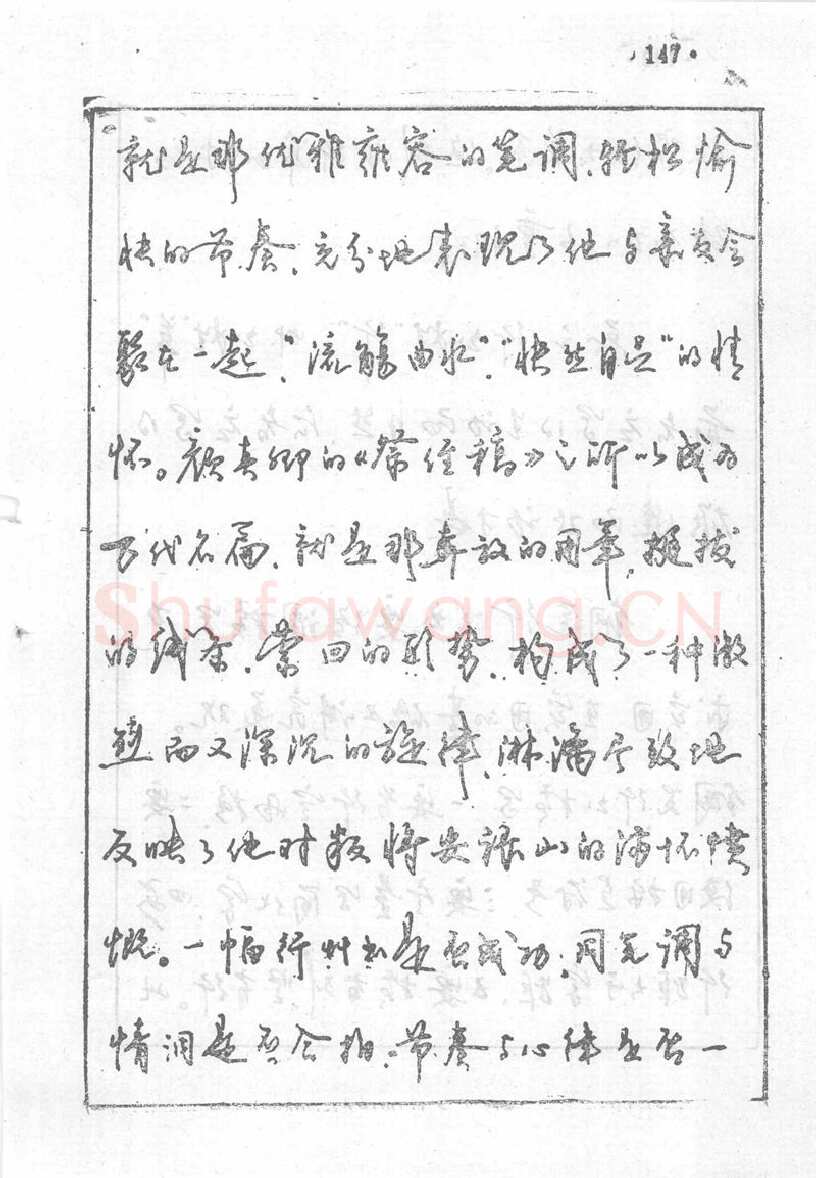 147
就是那优雅雍容的笔调、轻松愉
快的节奏、充分地表现了他与亲友会
聚在一起，“流觞曲水”，“快然自足”的情
怀。颜真卿的《祭侄稿》之所以成为
万代名篇、就是那奔放的用笔，挺拔
的线条、萦回的形势、构成了一种激
越而又深沉的旋律、淋漓尽致地
反映了他对叛将安禄山的满怀愤
慨。一幅行草书是否成功，同笔调与
情调是否合拍、节奏与心律是否一
Shufawang.CN